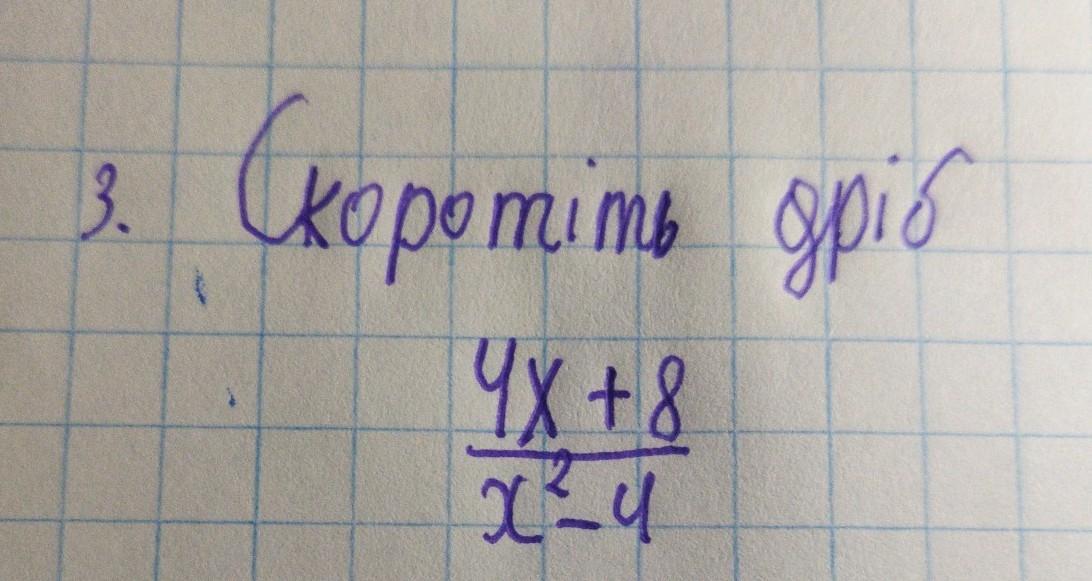 3. Скоротіть дріб
4x + 8
x² - 4